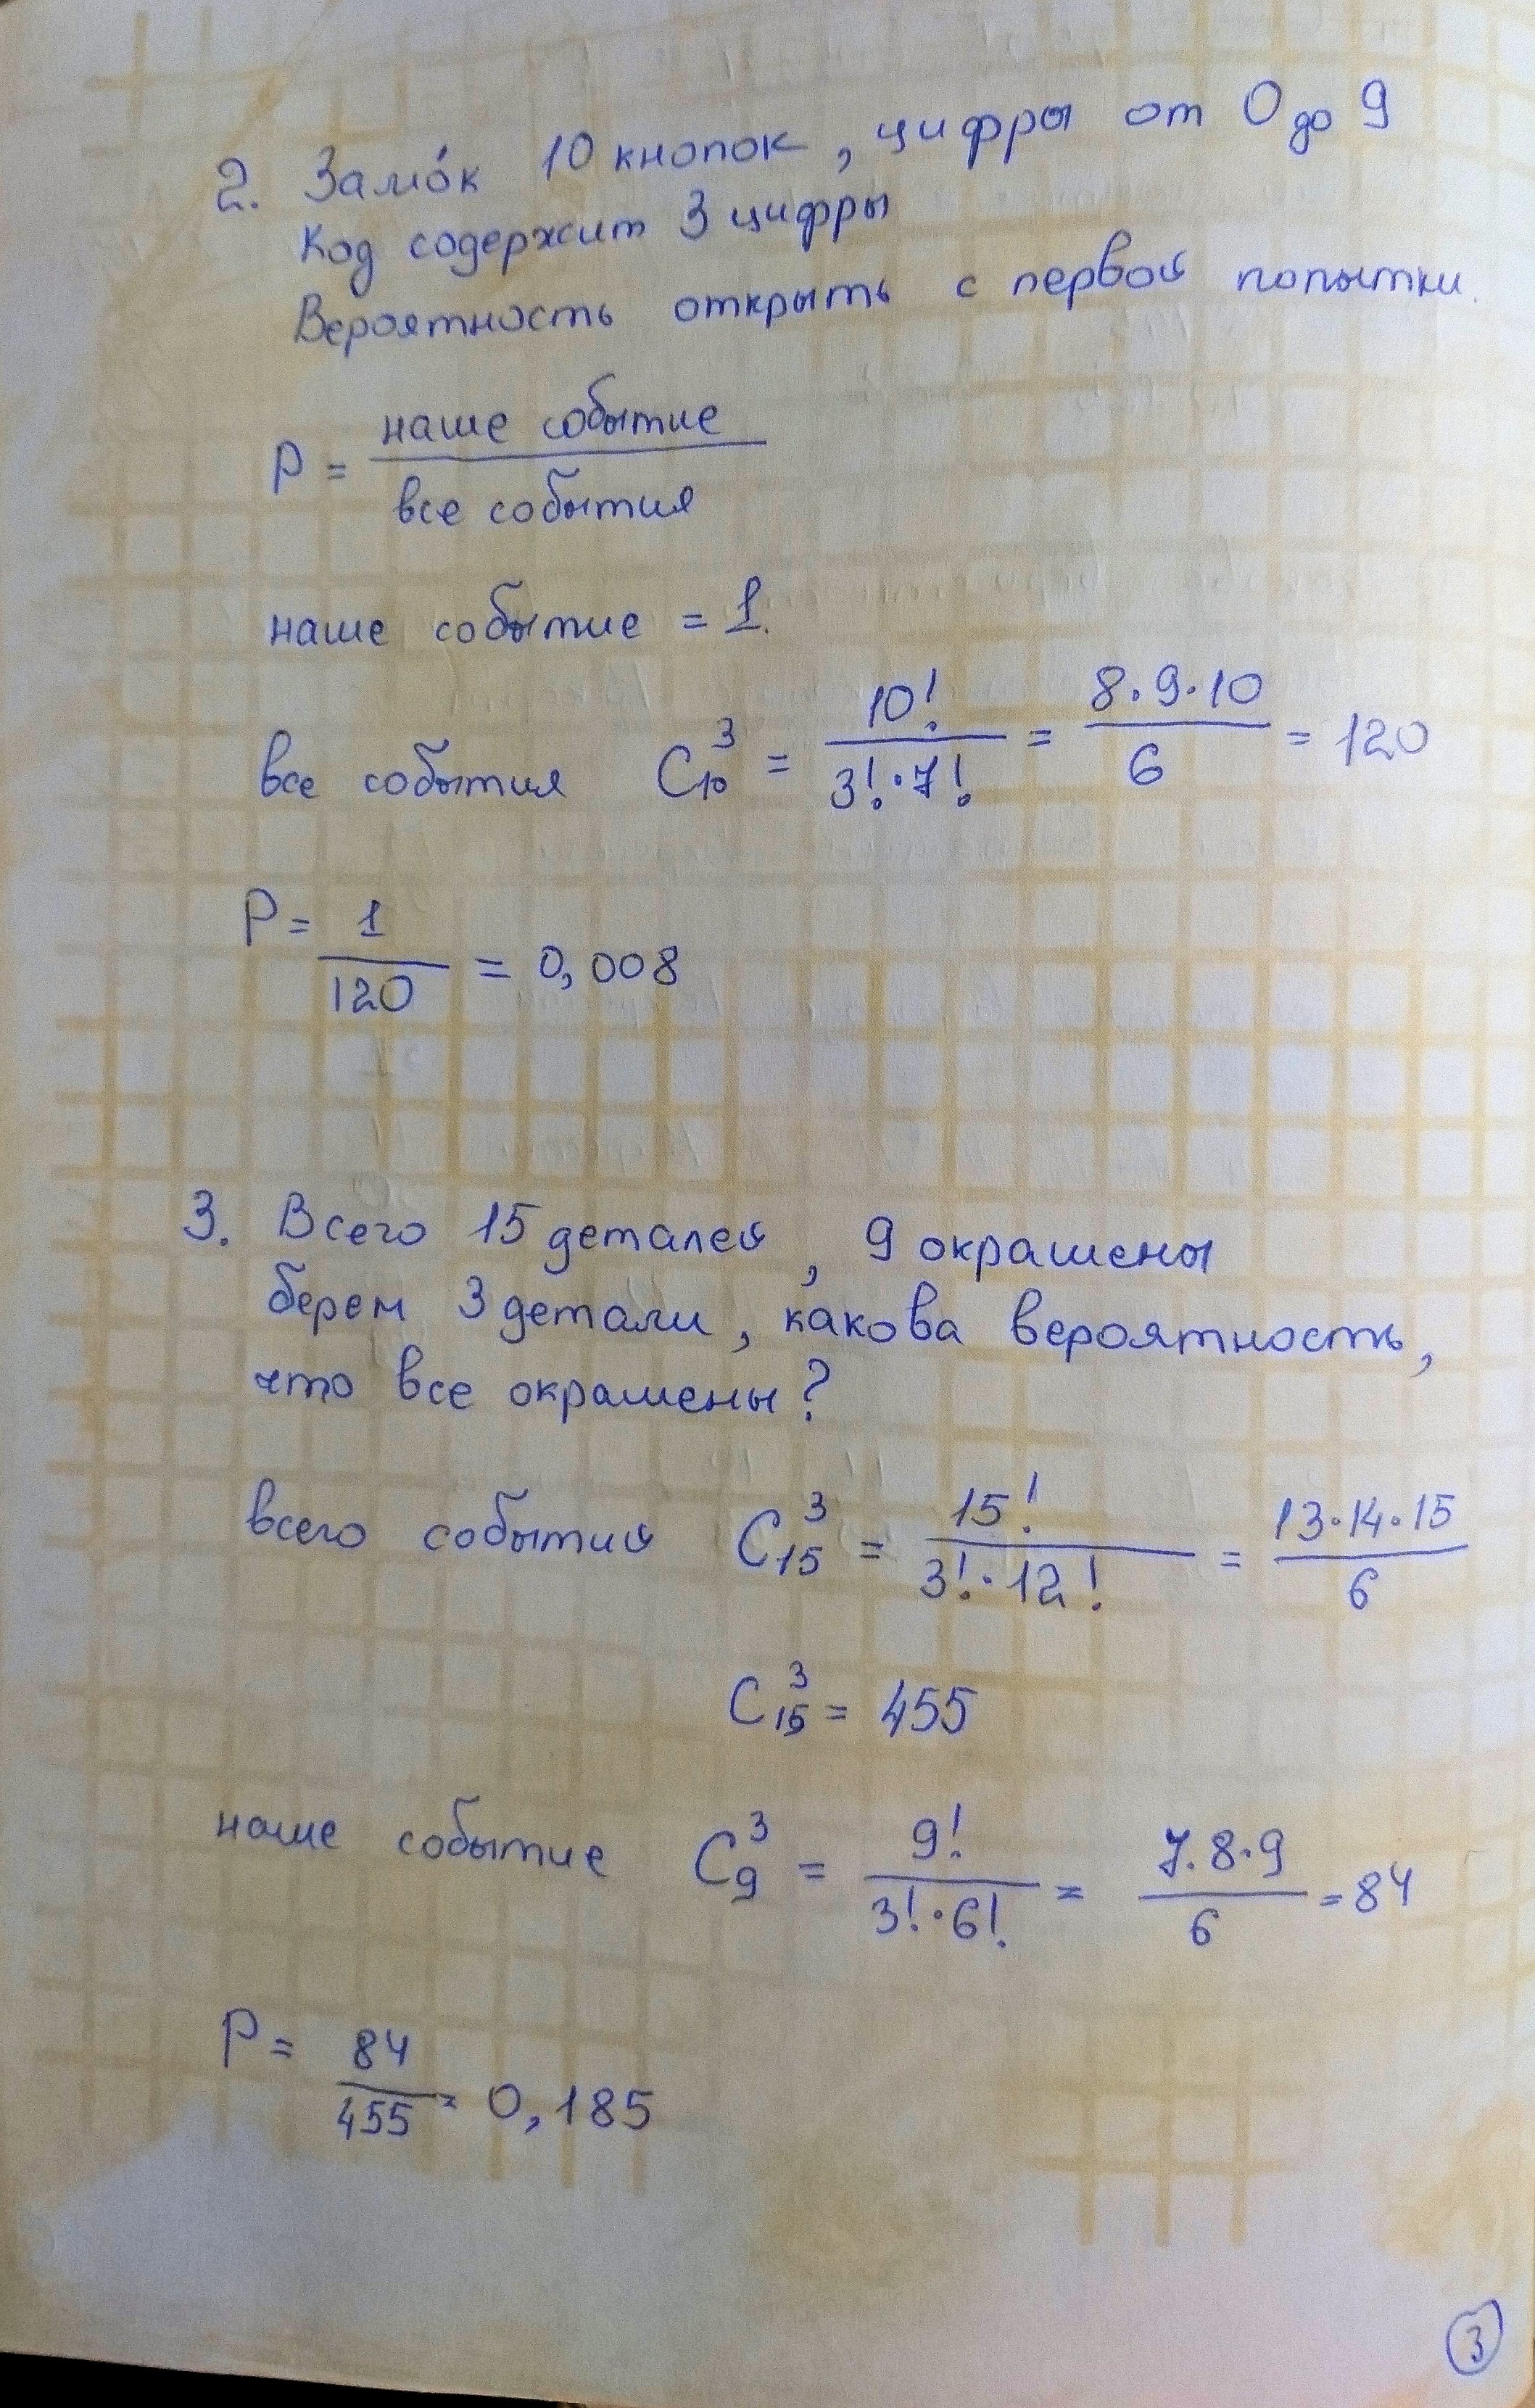 2. Замо́к 10 кнопок, цифры от 0 до 9
Код содержит 3 цифры
Вероятность открыть с первой попытки.
P = наше событие / все события
наше событие = 1.
все события C₁₀³ = 10! / 3!·7! = 8·9·10 / 6 = 120
P = 1 / 120 = 0,008
3. Всего 15 деталей, 9 окрашены
берем 3 детали, какова вероятность,
что все окрашены?
всего событий C₁₅³ = 15! / 3!·12! = 13·14·15 / 6
C₁₅³ = 455
наше событие C₉³ = 9! / 3!·6! = 7·8·9 / 6 = 84
P = 84 / 455 = 0,185
3